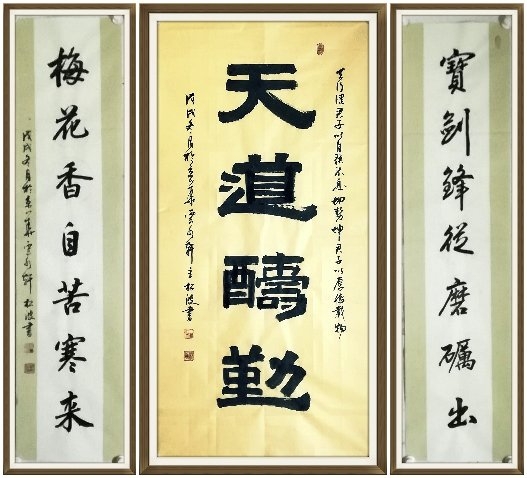 寶劍鋒從磨礪出
天行健君子以自強不息地勢坤君子以厚德載物
天道醻勤
戊戌冬月於京華雲水軒主松波書
梅花香自苦寒来
戊戌冬月於京華雲水軒松波書